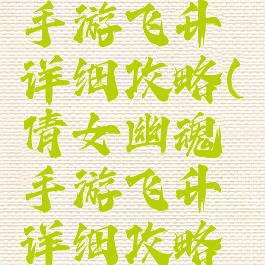 手游飞升
详细攻略(
倩女幽魂
手游飞升
详细攻略